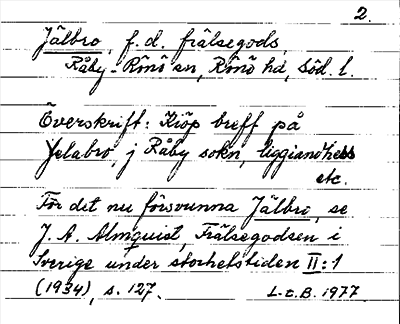 2.
Jälbro, f. d. frälsegods,
Råby-Rönö sn, Rönö hd, Söd. l.
Överskrift: Kiöp breff på
Jelabro, j Råby sokn, liggiandhess
etc.
För det nu försvunna Jälbro, se
J. A. Almquist, Frälsegodsen i
Sverige under storhetstiden II:1
(1934), s. 127.
L-t. B. 1977